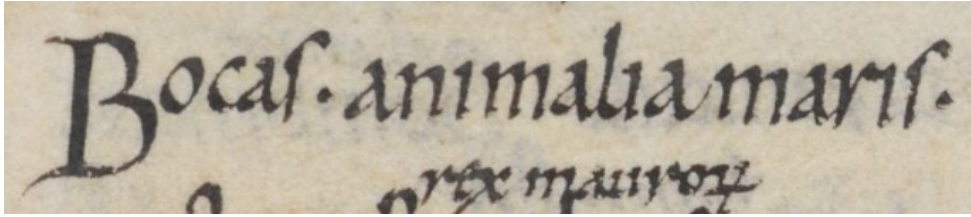 Bocaſ. animalia mariſ.
rex mauroꝝ